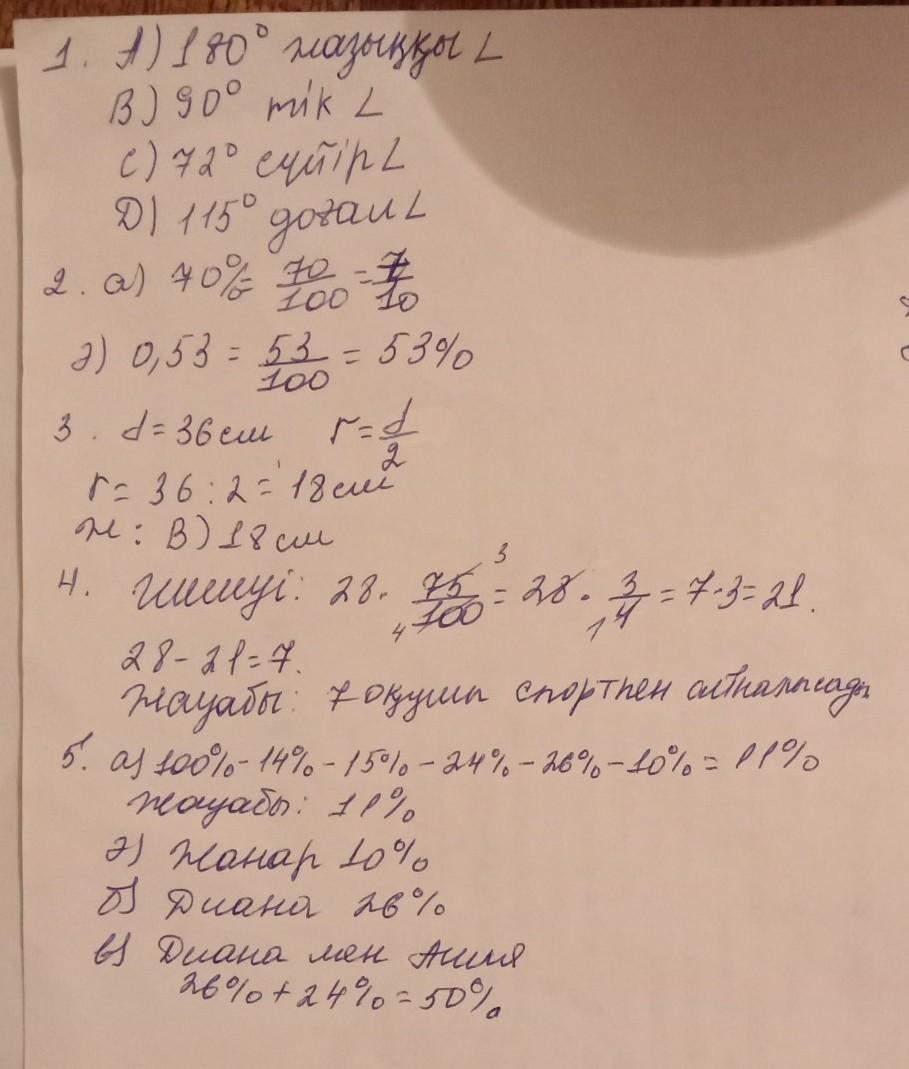 1. А) 180° жазыңқы ∠
В) 90° тік ∠
С) 72° сүйір ∠
Д) 115° доғал ∠
2. а) 70% = 70/100 = 7/10
ә) 0,53 = 53/100 = 53%
3. d = 36 см r = d/2
r = 36 : 2 = 18 см
Ж: В) 18 см
4. Шешуі: 28 · 75/100 = 28 · 3/4 = 7·3 = 21.
28 - 21 = 7.
Жауабы: 7 оқушы спортпен
5. а) 100% - 14% - 15% - 24% - 26% - 10% = 11%
Жауабы: 11%
ә) Жанар 10%
б) Диана 26%
в) Диана мен Асия
26% + 24% = 50%